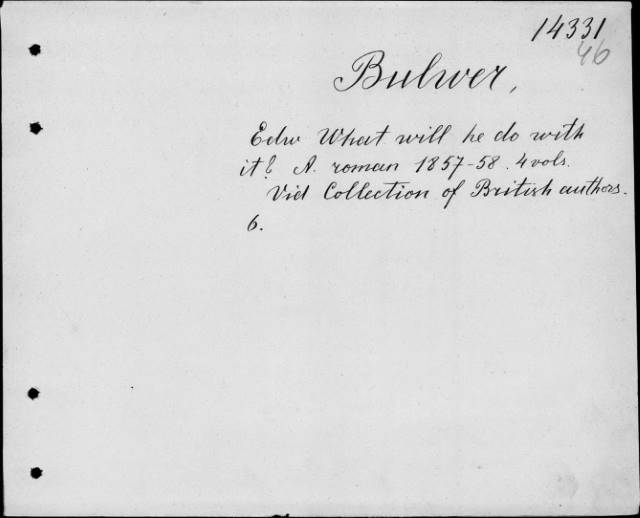 14331
46
Bulwer,
Edw What will he do with
it? A. roman 1857-58. 4 vols.
Vid Collection of British authors.
6.